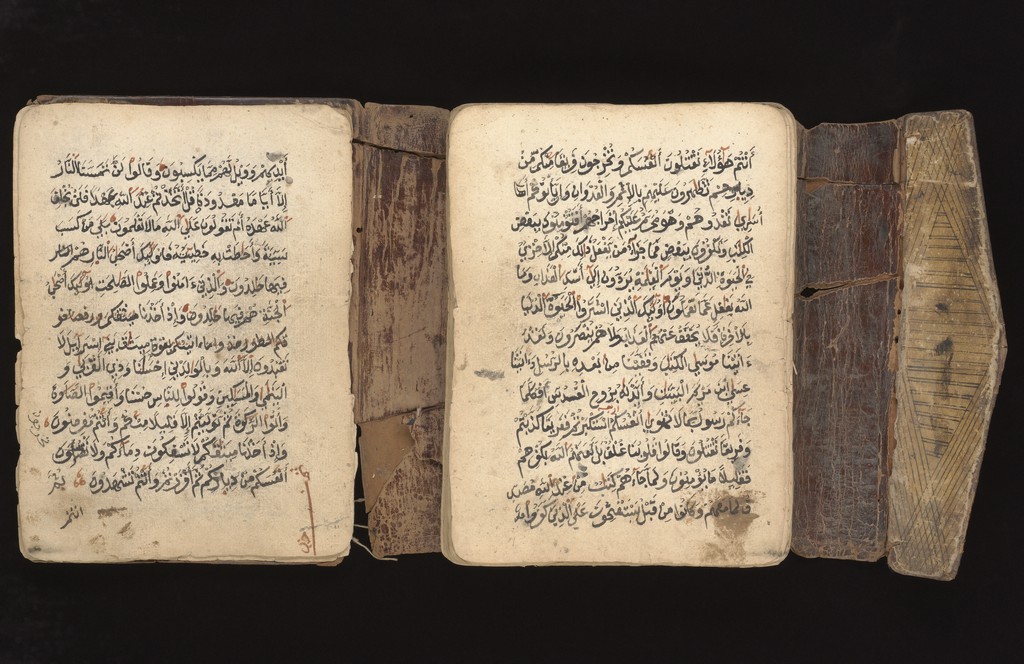 أيديهم وويل لهم مما يكسبون وقالوا لن تمسنا النار
إلا أياما معدودة قل أتخذتم عند الله عهدا فلن يخلف
الله عهده أم تقولون على الله ما لا تعلمون بلى من كسب
سيئة وأحطت به خطيئته فأولئك أصحب النار هم
فيها خلدون والذين ءامنوا وعملوا الصلحت أولئك أصحب
الجنة هم فيها خلدون وإذ أخذنا ميثقكم ورفعنا فو
قكم الطور خذوا ما ءاتينكم بقوة ميثق بني إسرءيل لا
تعبدون إلا الله وبالولدين إحسنا وذي القربى و
اليتمى والمسكين وقولوا للناس حسنا وأقيموا الصلوة
وءاتوا الزكوة ثم توليتم إلا قليلا منكم وأنتم معرضون
وإذ أخذنا ميثقكم لا تسفكون دماءكم ولا تخرجون
أنفسكم من دياركم ثم أقررتم وأنتم تشهدون ثم
انتم
أنتم هؤلاء تقتلون أنفسكم وتخرجون فريقا منكم من
ديارهم تظهرون عليهم بالإثم والعدوان وإن يأتوكم
أسرى تفدوهم وهو محرم عليكم إخراجهم أفتؤمنون ببعض
الكتب وتكفرون ببعض فما جزاء من يفعل ذلك منكم إلا خزي
في الحيوة الدنيا ويوم القيمة يردون إلى أشد العذاب وما
الله بغفل عما تعملون أولئك الذين اشتروا الحيوة الدنيا
بالآخرة فلا يخفف عنهم العذاب ولا هم ينصرون ولقد
ءاتينا موسى الكتب وقفينا من بعده بالرسل وءاتينا
عيسى ابن مريم البينت وأيدنه بروح القدس أفكلما
جاءكم رسول بما لا تهوى أنفسكم استكبرتم ففريقا كذبتم
وفريقا تقتلون وقالوا قلوبنا غلف بل لعنهم الله بكفرهم
فقليلا ما يؤمنون ولما جاءهم كتب من عند الله مصدق
لما معهم وكانوا من قبل يستفتحون على الذين كفروا فلما